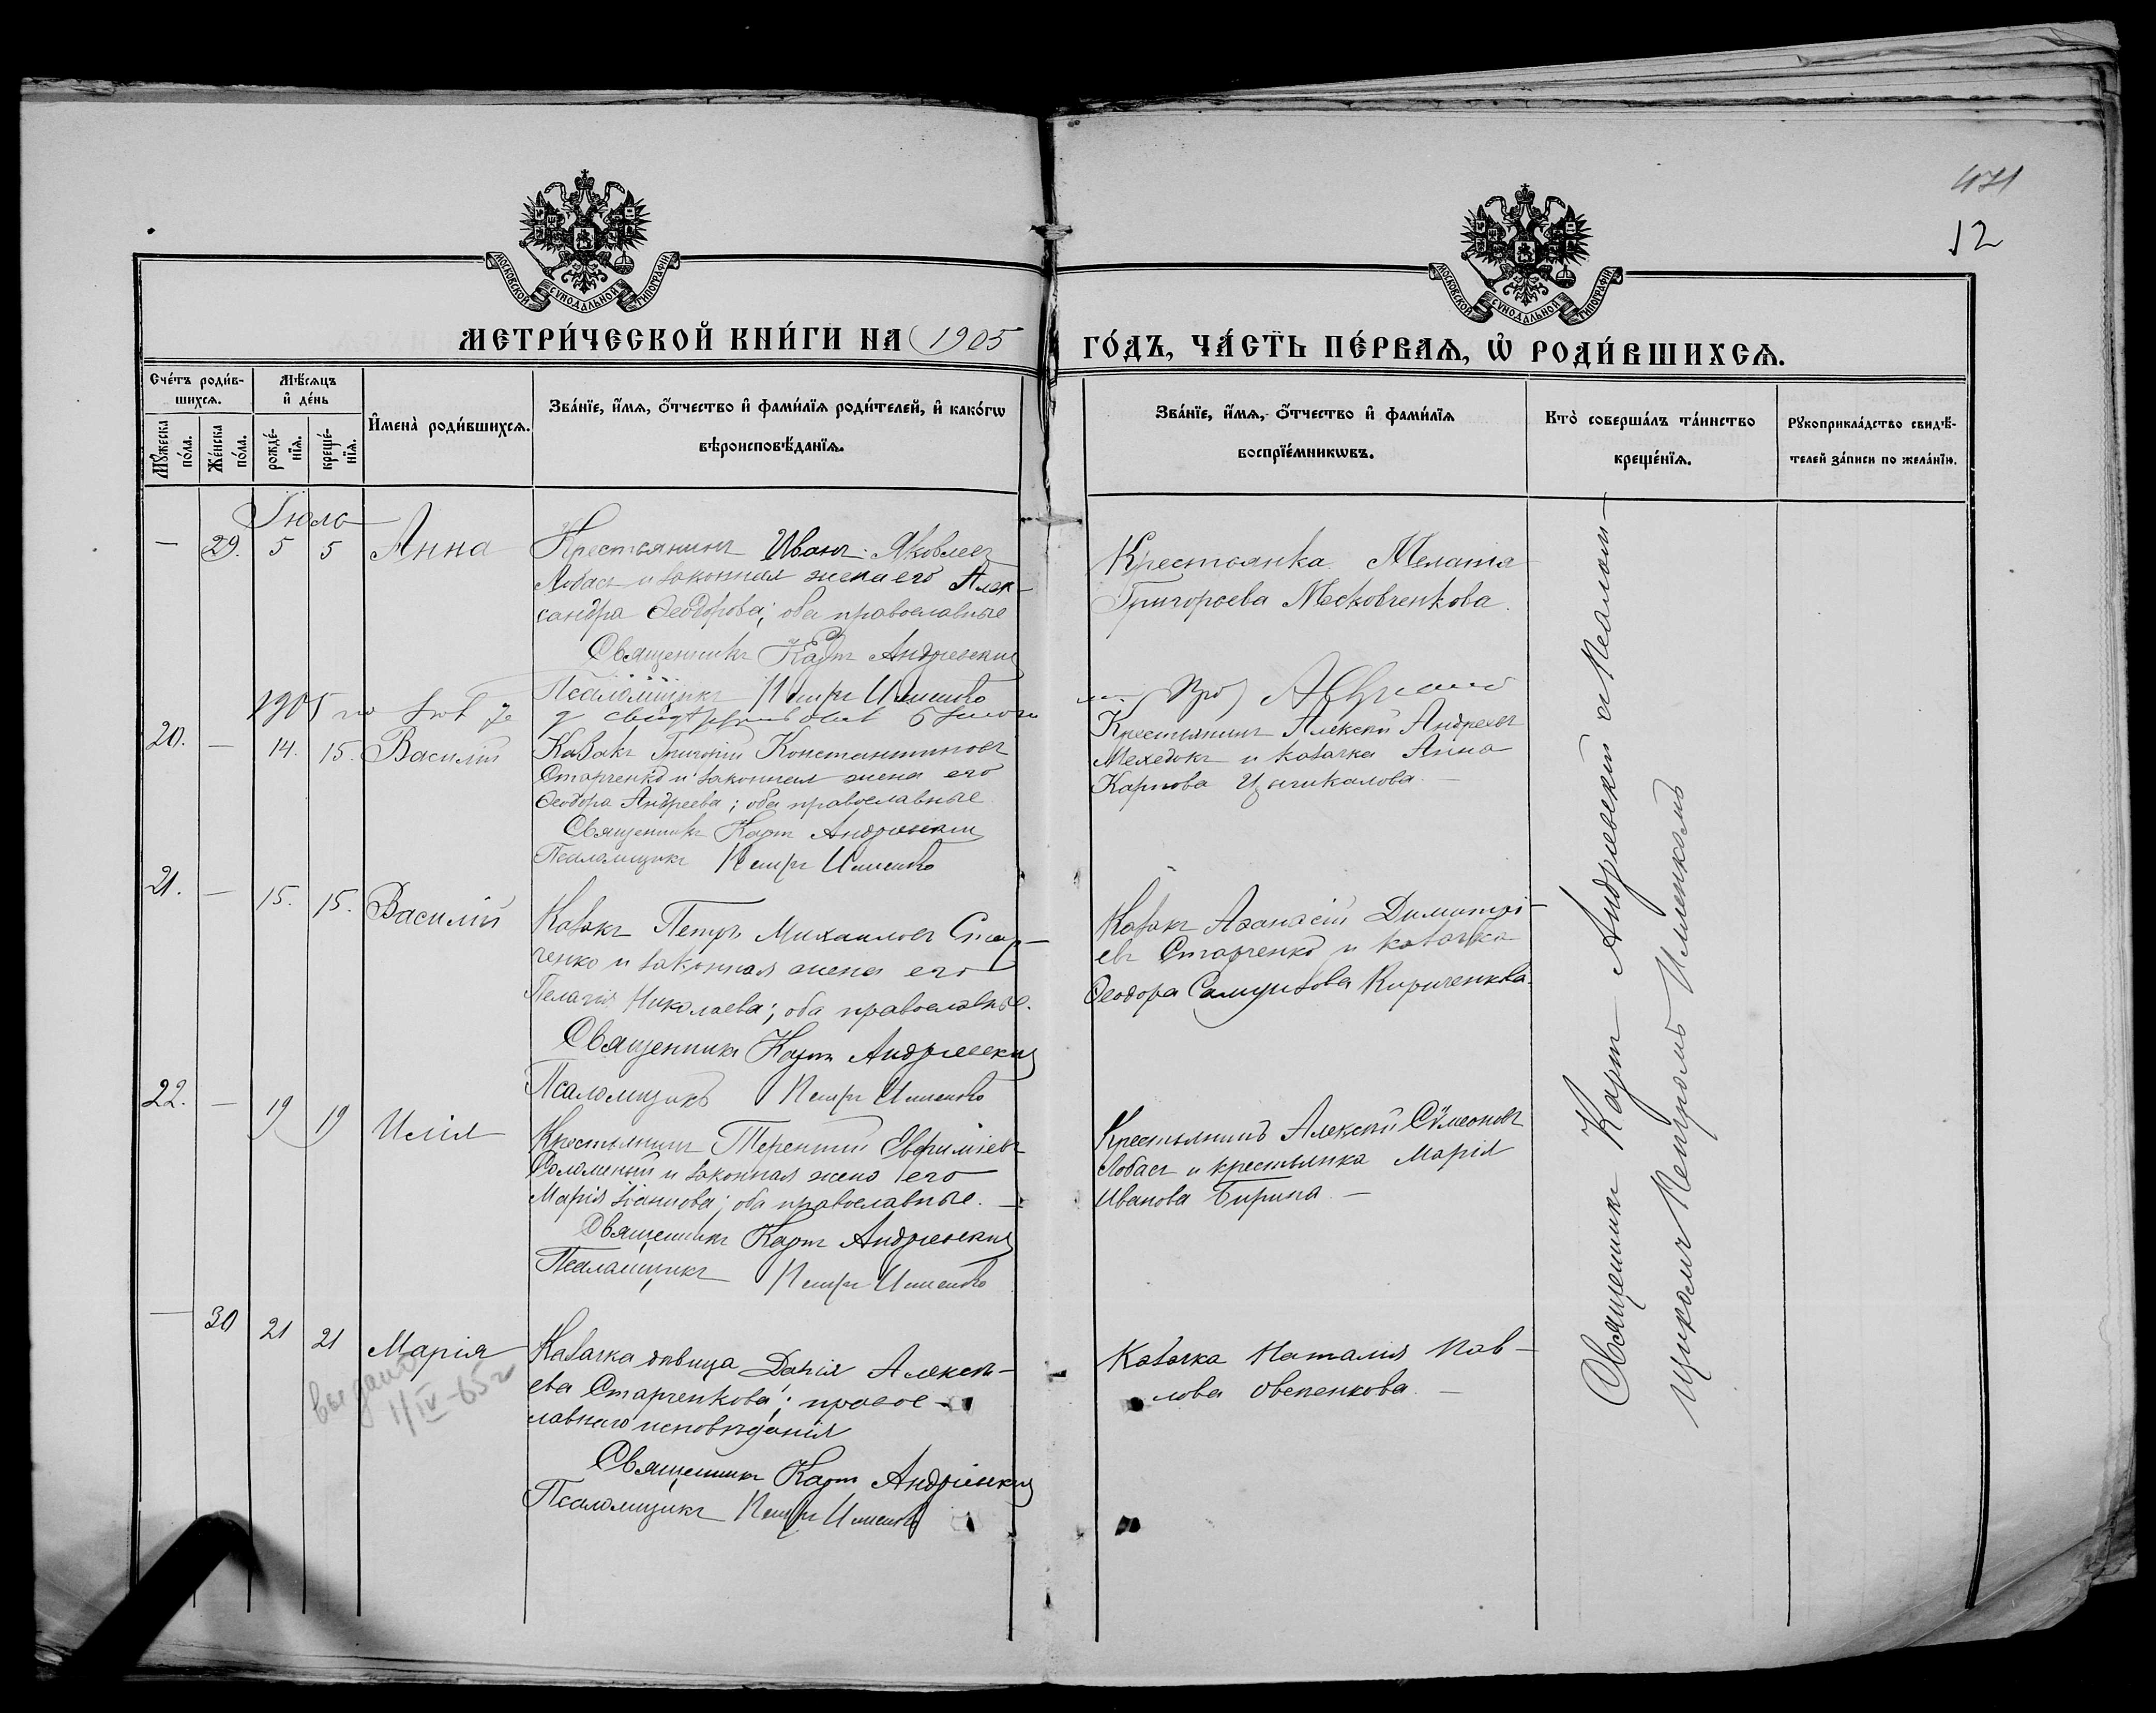 471
12
МОСКОВСКОЙ СѴНОДАЛЬНОЙ ТИПОГРАФІИ
МОСКОВСКОЙ СѴНОДАЛЬНОЙ ТИПОГРАФІИ
МЕТРИ́ЧЕСКОЙ КНИ́ГИ НА 1905 ГО́ДЪ, ЧА́СТЬ ПЕ́РВАѦ, Ѡ҆ РОДИ́ВШИХСѦ.
Сче́тъ роди́в-
шихсѧ.
Мꙋ́жеска
по́ла.
Же́нска
по́ла.
Мѣ́сѧцъ
и҆ де́нь
рожде́-
нїѧ.
креще́-
нїѧ.
И҆мена̀ роди́вшихсѧ.
Зва́нїе, и҆́мѧ, ѻ҆́тчество и҆ фами́лїѧ роди́телей, и҆ како́гѡ
вѣроисповѣ́данїѧ.
Зва́нїе, и҆́мѧ, ѻ҆́тчество и҆ фами́лїѧ
воспрїе́мникѡвъ.
Кто̀ соверша́лъ та́инство
креще́нїѧ.
Рꙋкоприкла́дство свидѣ́-
телей за́писи по жела́нїю.
Іюль
— 29. 5 5 Анна
Крестьянинъ Иванъ Яковлевъ
Лобасъ и законная жена его Алек-
сандра Ѳеодорова; оба православные
Священникъ Карпъ Андріевскій
Псаломщикъ Петръ Ильенко
Крестьянка Мелатія
Григорьева Месковченкова.
1905
20. — 14. 15. Василій
Казакъ Григорій Константиновъ
Старченко и законная жена его
Ѳеодора Андреева; оба православные
Священникъ Карпъ Андріевскій
Псаломщикъ Петръ Ильенко
Крестьянинъ Алексѣй Андреевъ
Мехедокъ и казачка Анна
Карпова Цыгикалова. —
21. — 15. 15. Василій
Казакъ Петръ Михаиловъ Стар-
ченко и законная жена его
Пелагія Николаева; оба православные.
Священникъ Карпъ Андріевскій
Псаломщикъ Петръ Ильенко
Казакъ Аѳанасій Димитрі-
евъ Старченко и казачка
Ѳеодора Самуилова Кириченкова.
22. — 19 19 Илія
Крестьянинъ Терентій Евфиміевъ
Соломяный и законная жена его
Марія Іоаннова; оба православные. —
Священникъ Карпъ Андріевскій
Псаломщикъ Петръ Ильенко
Крестьянинъ Алексѣй Сѵмеоновъ
Лобасъ и крестьянка Марія
Иванова Бирина. —
— 30 21 21 Марія
выдано
1/IV-65 г
Казачка дѣвица Дарія Алексѣ-
ева Старченкова; правос-
лавнаго исповѣданія
Священникъ Карпъ Андріевскій
Псаломщикъ Петръ Ильенко
Казачка Наталія Пав-
лова Овепенкова. —
Священникъ Карпъ Андріевскій съ Псалом-
щикомъ Петромъ Ильенкомъ